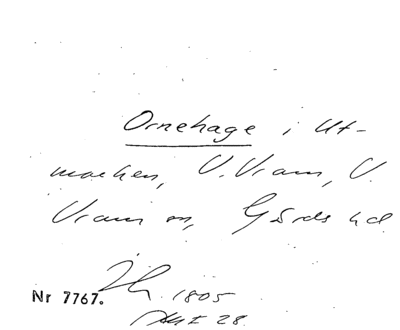 Ornehage i Ut-
marken, V. Vram, V.
Vram sn, Gärds hd
Nr 7767. 1805